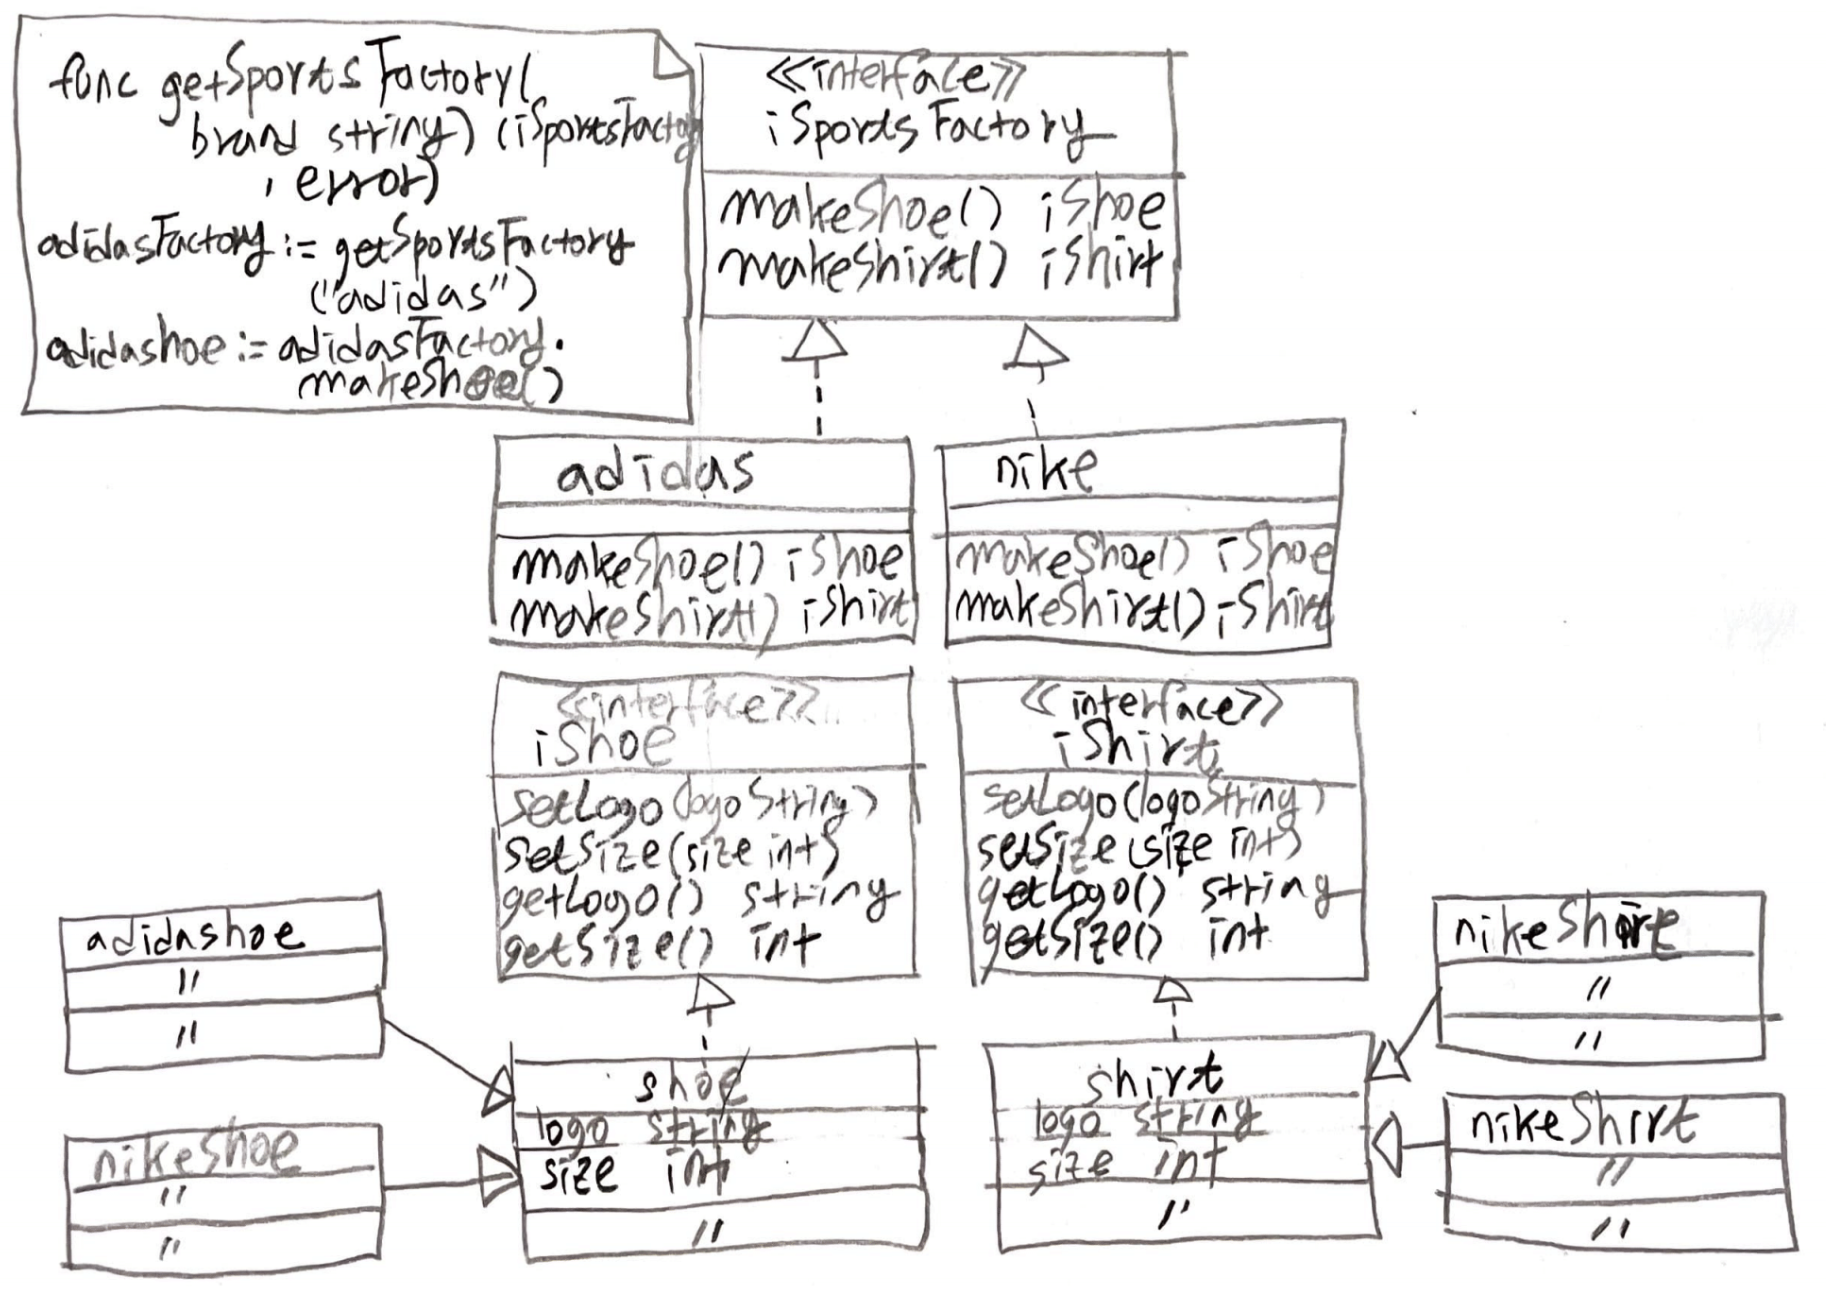 func getSportsFactory(
brand string) (iSportsFactory
, error)
adidasFactory := getSportsFactory
("adidas")
adidashoe := adidasFactory.
makeShoe()
<<interface>>
iSportsFactory
makeShoe() iShoe
makeShirt() iShirt
adidas
makeShoe() iShoe
makeShirt() iShirt
nike
makeShoe() iShoe
makeShirt() iShirt
<<interface>>
iShoe
setLogo(logo String)
setSize(size int)
getLogo() string
getSize() int
<<interface>>
iShirt
setLogo(logo String)
setSize(size int)
getLogo() string
getSize() int
adidashoe
"
"
nikeShoe
"
"
shoe
logo string
size int
"
shirt
logo string
size int
"
nikeShirt
"
"
nikeShirt
"
"